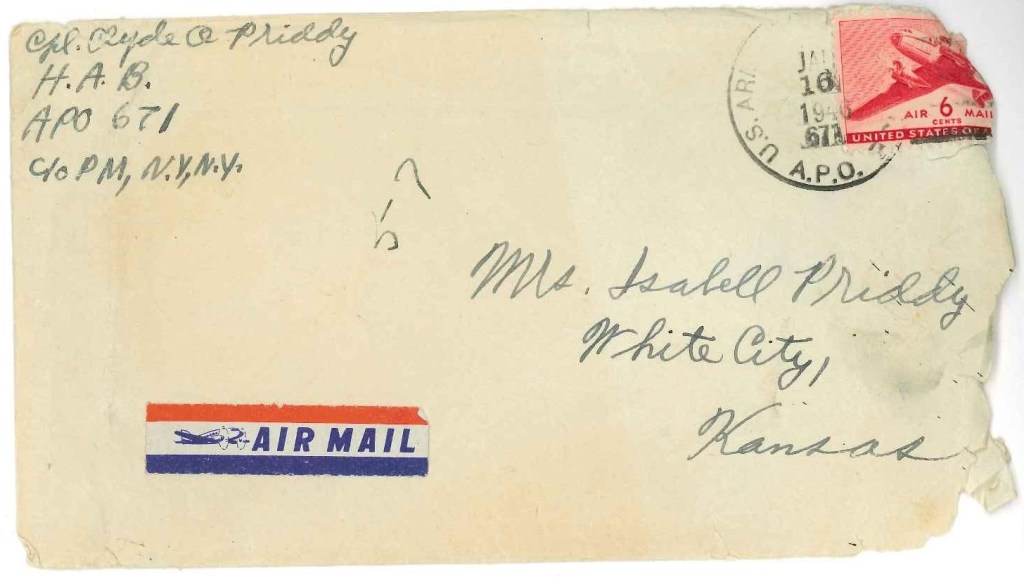 Cpl. Clyde A Priddy
H.A.B.
APO 671
c/o PM, N.Y., N.Y.
5-7
U.S. AR
JAN
16
1946
671
A.P.O.
AIR 6 MAIL
CENTS
UNITED STATES OF
Mrs. Isabell Priddy
White City,
Kansas
AIR MAIL